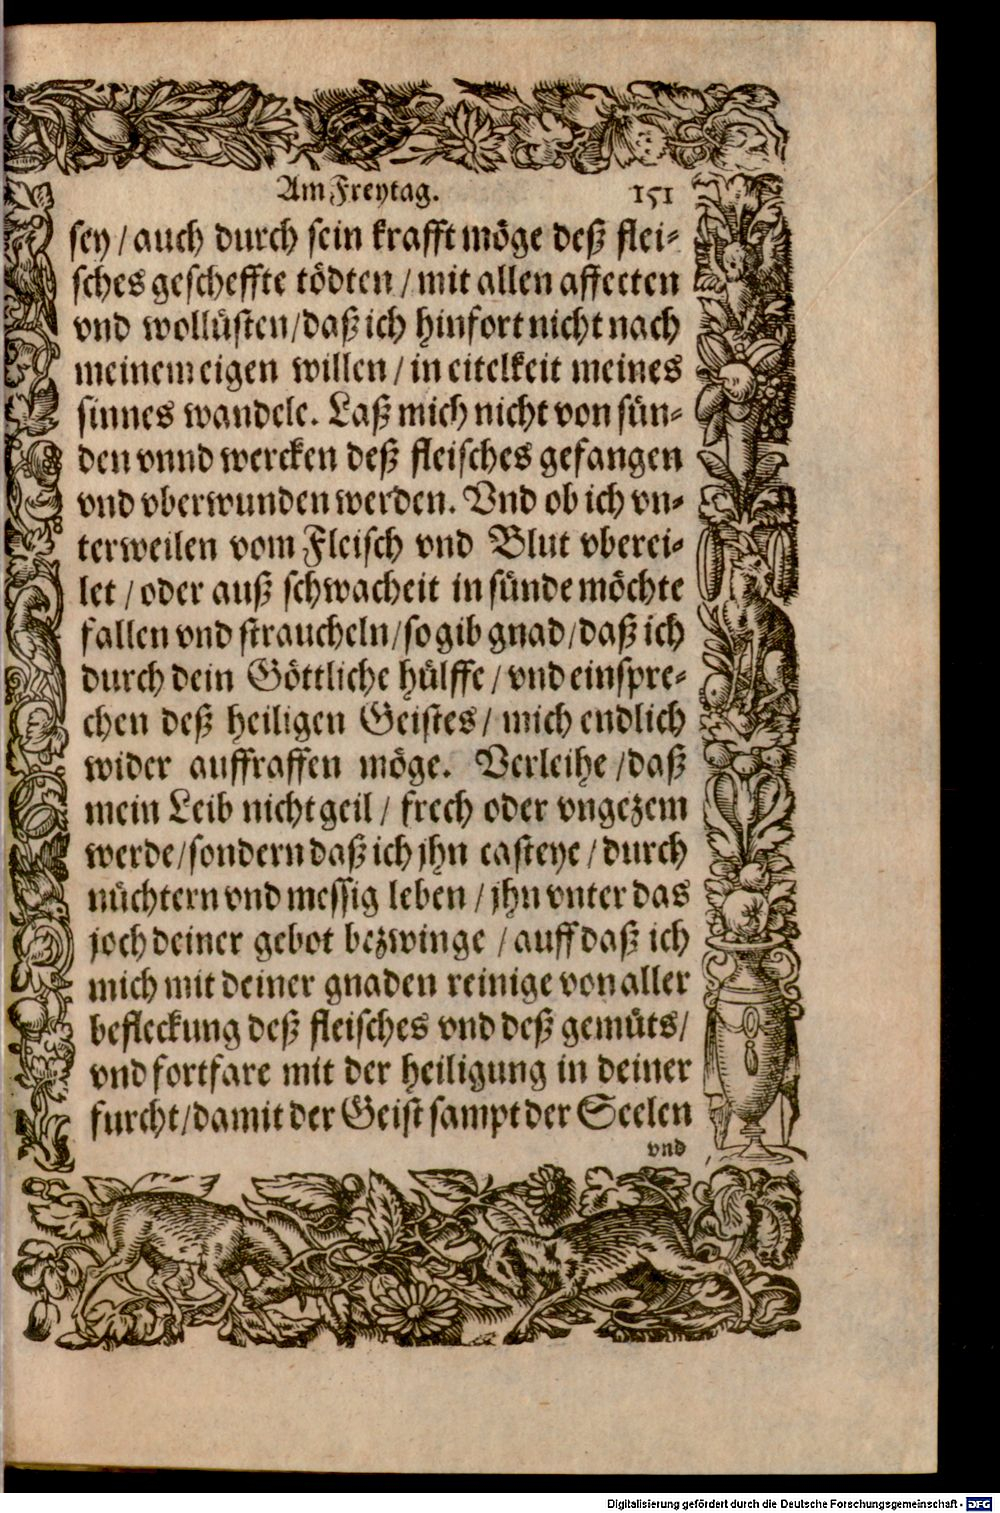 Am Freytag. 151
sey / auch durch sein krafft möge deß flei-
sches gescheffte tödten / mit allen affecten
vnd wollüsten / daß ich hinfort nicht nach
meinem eigen willen / in eitelkeit meines
sinnes wandele. Laß mich nicht von sün-
den vnnd wercken deß fleisches gefangen
vnd vberwunden werden. Vnd ob ich vn-
terweilen vom Fleisch vnd Blut vberei-
let / oder auß schwacheit in sünde möchte
fallen vnd straucheln / so gib gnad / daß ich
durch dein Göttliche hülffe / vnd einspre-
chen deß heiligen Geistes / mich endlich
wider auffraffen möge. Verleihe / daß
mein Leib nicht geil / frech oder vngezem
werde / sondern daß ich jhn casteye / durch
nüchtern vnd messig leben / jhn vnter das
joch deiner gebot bezwinge / auff daß ich
mich mit deiner gnaden reinige von aller
befleckung deß fleisches vnd deß gemüts /
vnd fortfare mit der heiligung in deiner
furcht / damit der Geist sampt der Seelen
vnd
Digitalisierung gefördert durch die Deutsche Forschungsgemeinschaft - DFG